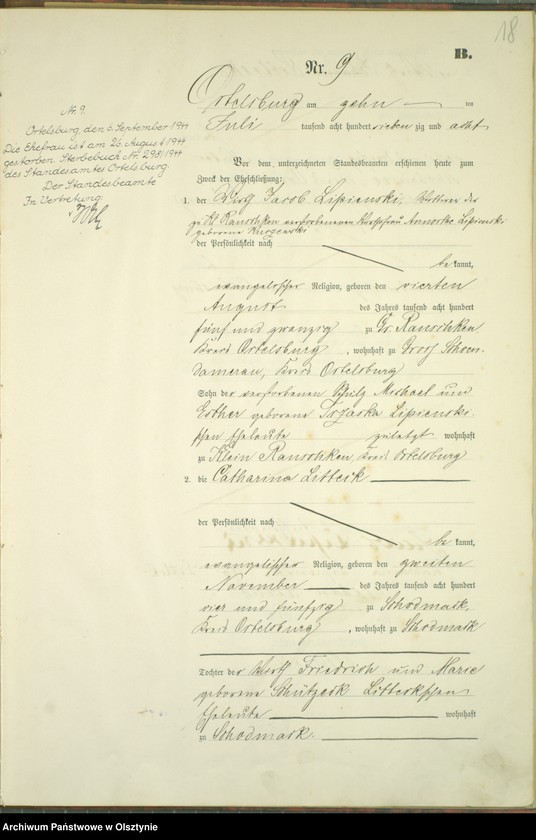 18
B.
Nr. 9
Nr. 9.
Ortelsburg, den 6. September 1944
Die Ehefrau ist am 26. August 1944
gestorben Sterbebuch Nr. 298/1944
des Standesamtes Ortelsburg.
Der Standesbeamte
In Vertretung:
Ortelsburg am zehn ten
Juli tausend acht hundert sieben zig und acht
Vor dem unterzeichneten Standesbeamten erschienen heute zum
Zweck der Eheschließung:
1. der Wirth Jacob Lipienski, Wittwer der
zu Kl Ranschken verstorbenen Lipienski
geborene
der Persönlichkeit nach
be kannt,
evangelischer Religion, geboren den vierten
August des Jahres tausend acht hundert
fünf und zwanzig zu Gr. Ranschken,
Kreis Ortelsburg, wohnhaft zu Gross Schoen
damerau, Kreis Ortelsburg
Sohn der verstorbenen Michael und
Esther geborene Lipienski
schen Eheleute zuletzt wohnhaft
zu Klein Ranschken, Kreis Ortelsburg
2. die Catharina Litteik
der Persönlichkeit nach
be kannt,
evangelischer Religion, geboren den zweiten
November des Jahres tausend acht hundert
vier und fünfzig zu Schodmak,
Kreis Ortelsburg, wohnhaft zu Schodmak
Tochter der Friedrich und Marie
geborene Litteikschen
Eheleute wohnhaft
zu Schodmack.
Archiwum Państwowe w Olsztynie